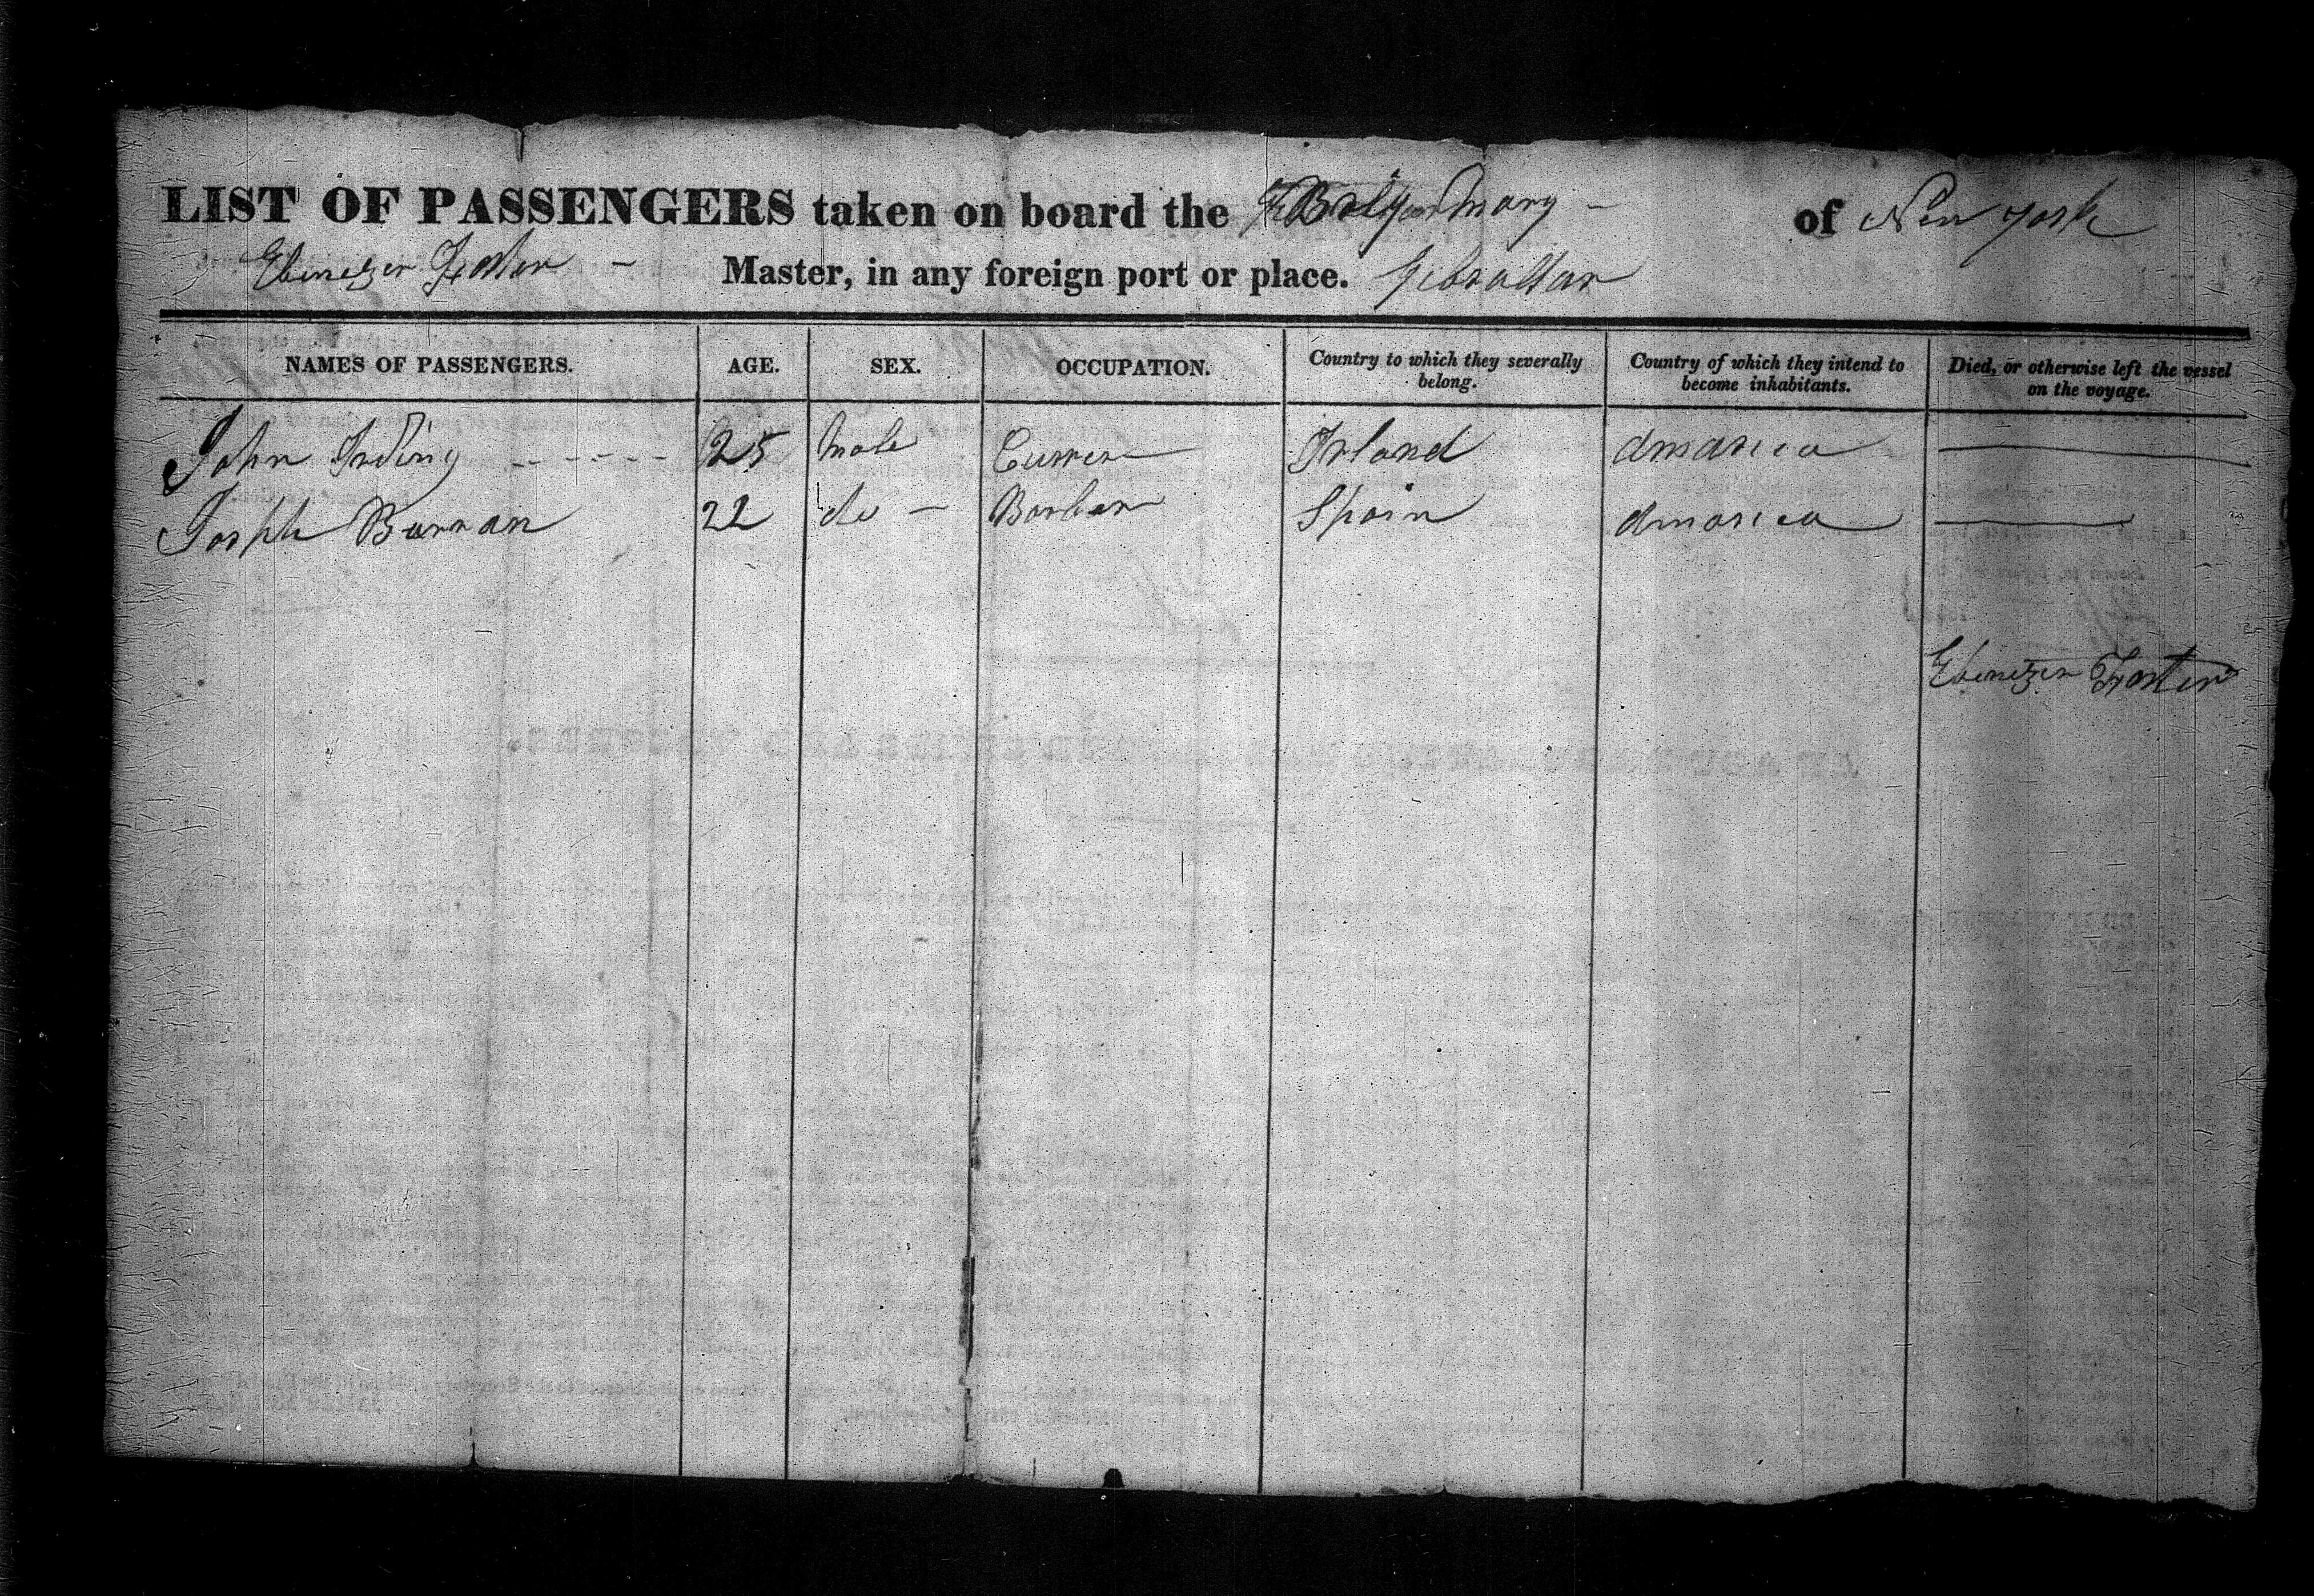 LIST OF PASSENGERS taken on board the Mary – of New York
Ebenezer Foster – Master, in any foreign port or place. Gibraltar
NAMES OF PASSENGERS. AGE. SEX. OCCUPATION. Country to which they severally belong. Country of which they intend to become inhabitants. Died, or otherwise left the vessel on the voyage.
John 25 Male Irland amarica
Joseph 22 do – Barber Spain amarica
Ebenezer Foster